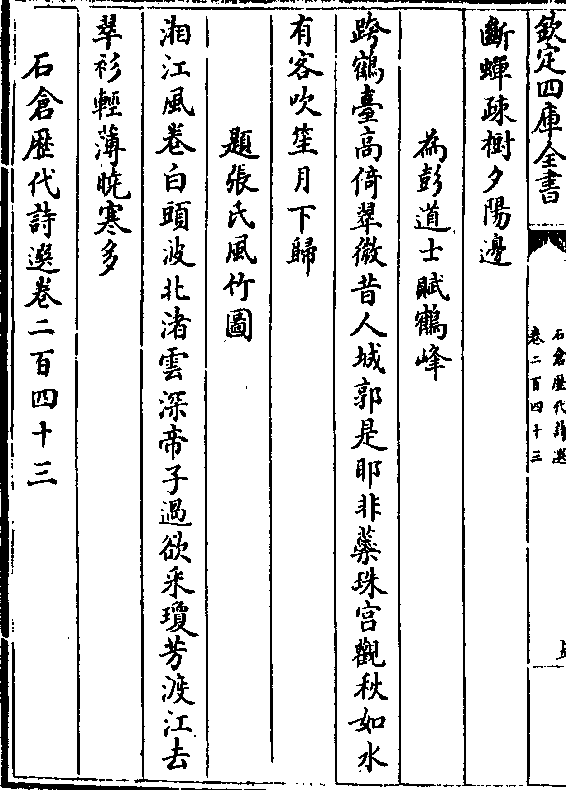 欽定四庫全書
石倉歷代詩選
卷二百四十三
斷蟬疎樹夕陽邊
為彭道士賦鶴峰
跨鶴臺高倚翠微昔人城郭是耶非蘂珠宮觀秋如水
有客吹笙月下歸
題張氏風竹圖
湘江風卷白頭波北渚雲深帝子過欲采瓊芳渡江去
翠衫輕薄晚寒多
石倉歷代詩選卷二百四十三